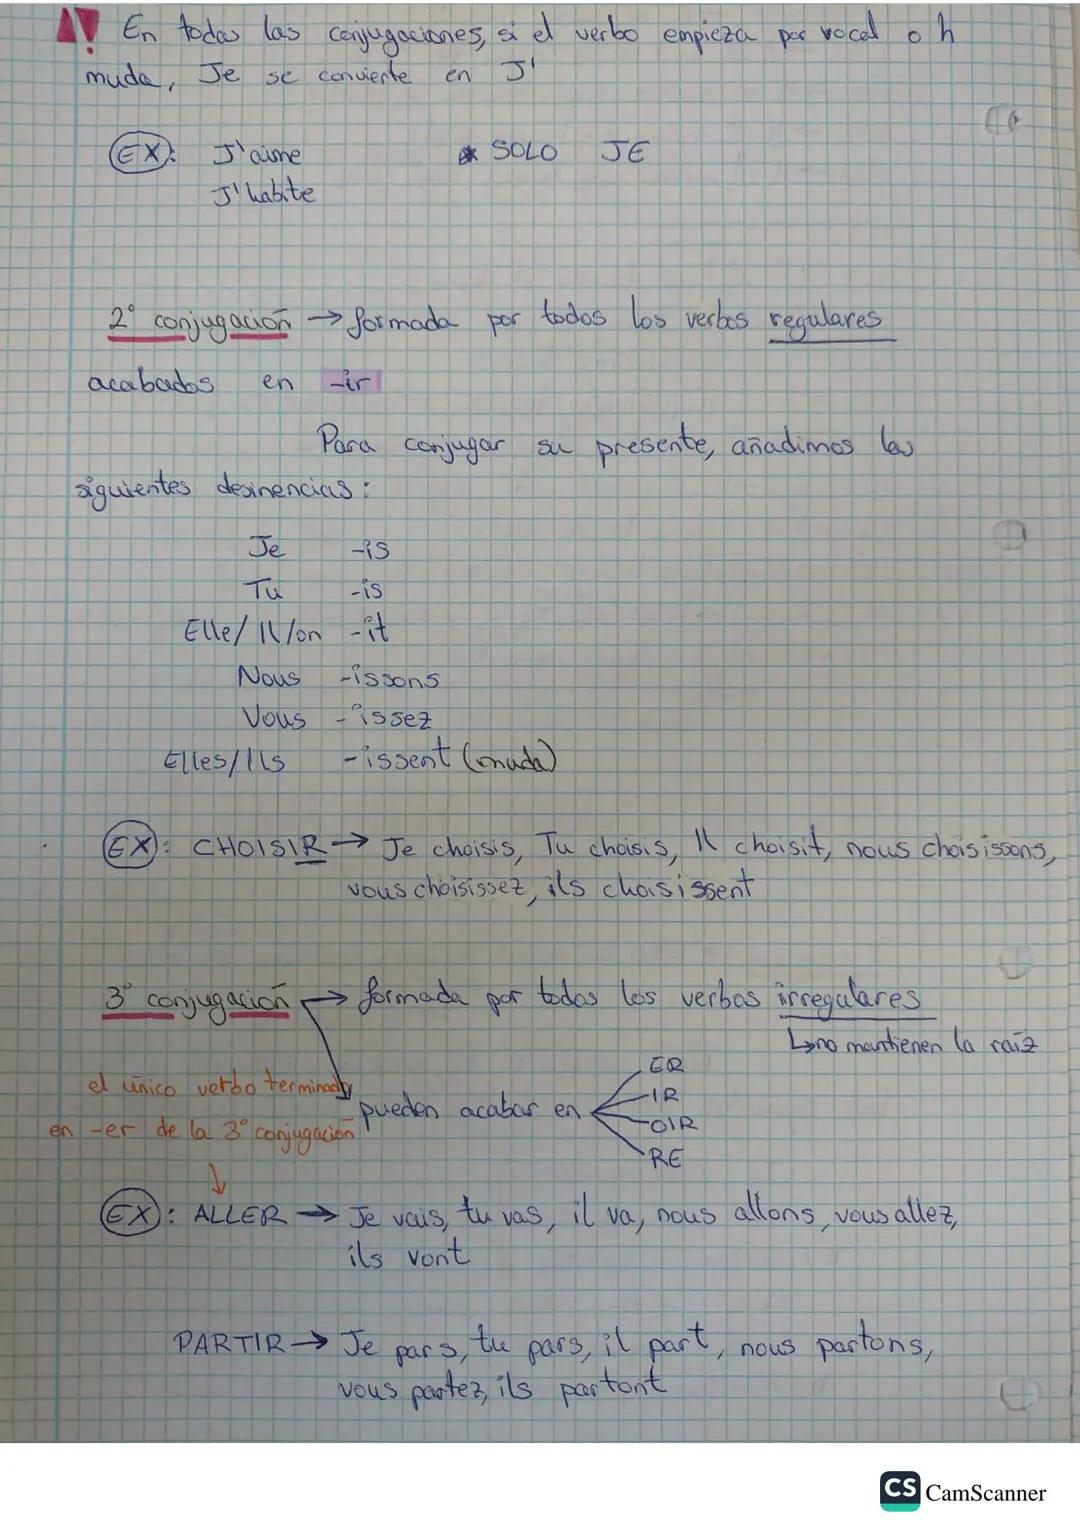 En todas las conjugaciones, si el verbo empieza por vocal o h
muda, Je se convierte en J'
EX: J'aime * SOLO JE
J'habite
2º conjugación → formada por todos los verbos regulares
acabados en -ir
Para conjugar su presente, añadimos las
siguientes desinencias:
Je -is
Tu -is
Elle/Il/on -it
Nous -issons
Vous -issez
Elles/Ils -issent (muda)
EX: CHOISIR → Je choisis, Tu choisis, Il choisit, nous choisissons,
vous choisissez, ils choisissent
3º conjugación → formada por todos los verbos irregulares
↳ no mantienen la raíz
el único verbo terminado
en -er de la 3º conjugación
pueden acabar en
ER
IR
OIR
RE
EX: ALLER → Je vais, tu vas, il va, nous allons, vous allez,
ils vont
PARTIR → Je pars, tu pars, il part, nous partons,
vous partez, ils partont
CS CamScanner